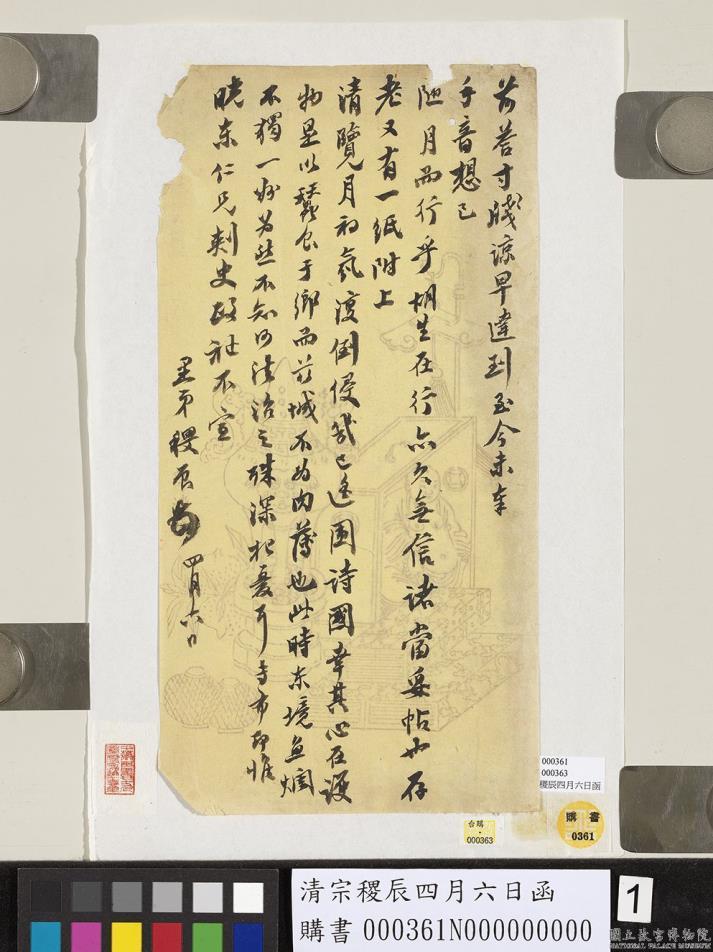 前答寸牋諒早達到至今未奉
手音想已
陬月而行乎胡生在行亦久無信諸當妥帖也存
老又有一紙附上
清覽月初氣渡倒侵我已逢國詩國幸其心在護
物是以蠶食于鄉而前城不為肉薄也此時東境無爛
不獨一州為然不知何法治之殊深杞憂耳專布即惟
曉東仁兄刺史政祉不宣
愚弟稷辰 四月六日
000361
000363
稷辰四月六日函
台購
000363
購書
0361
清宗稷辰四月六日函
購書 000361N000000000
1
國立故宮博物院
NATIONAL PALACE MUSEUM